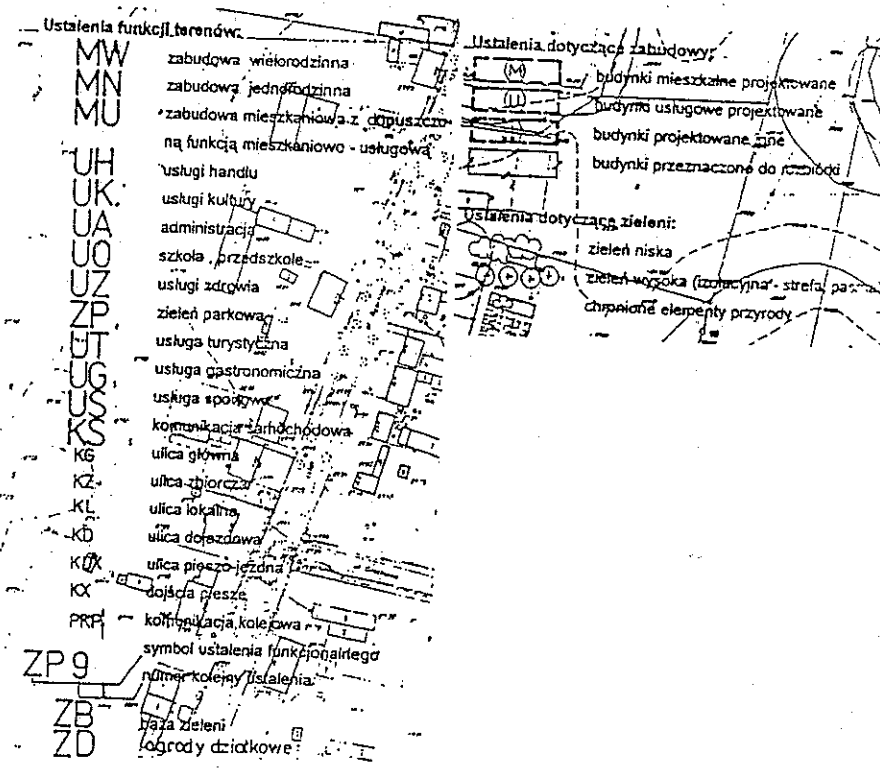 Ustalenia funkcji terenów:
MW zabudowa wielorodzinna
MN zabudowa jednorodzinna
MU zabudowa mieszkaniowa z dopuszczo-
ną funkcją mieszkaniowo - usługową
UH usługi handlu
UK usługi kultury
UA administracja
UO szkoła, przedszkole
UZ usługi zdrowia
ZP zieleń parkowa
UT usługa turystyczna
UG usługa gastronomiczna
US usługa sportowa
KS komunikacja samochodowa
KG ulica główna
KZ ulica zbiorcza
KL ulica lokalna
KD ulica dojazdowa
KDX ulica pieszo-jezdna
KX dojścia piesze
PKP komunikacja kolejowa
symbol ustalenia funkcjonalnego
ZP 9
numer kolejny ustalenia
ZB baza zieleni
ZD ogrody działkowe
Ustalenia dotyczące zabudowy:
(M) budynki mieszkalne projektowane
(U) budynki usługowe projektowane
budynki projektowane inne
budynki przeznaczone do rozbiórki
Ustalenia dotyczące zieleni:
zieleń niska
zieleń wysoka (izolacyjna - strefa,
chronione elementy przyrody